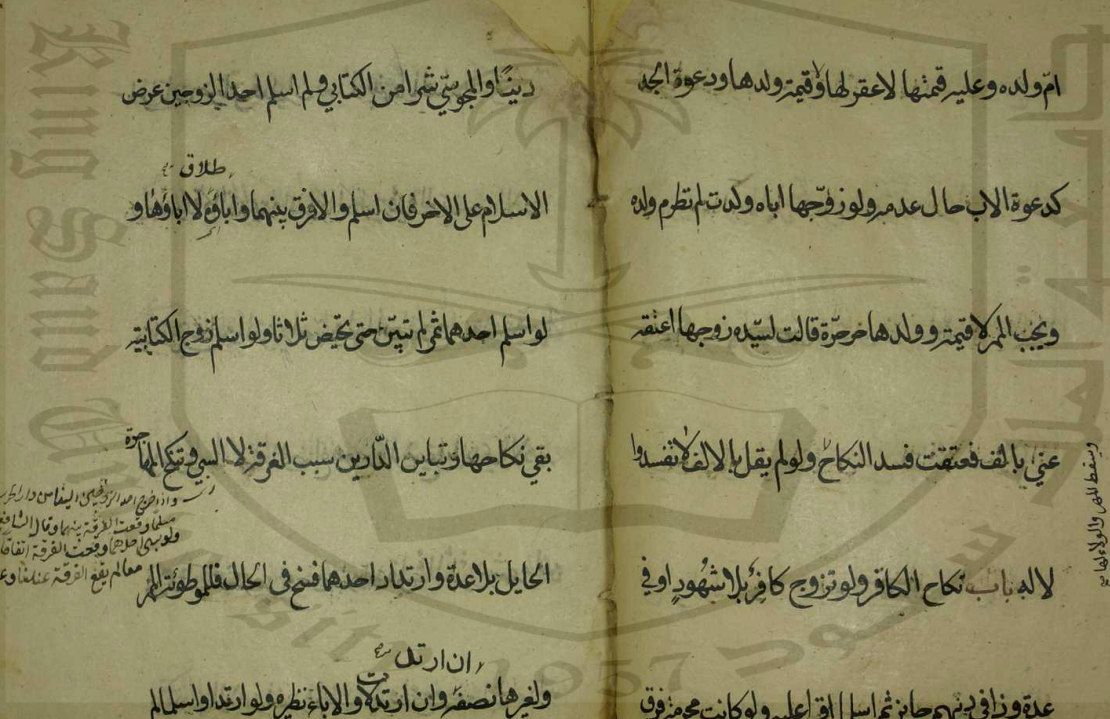 امّ ولده وعليه قيمتها لا عقرلها وقيمة ولدها ودعوة الجد
كدعوة الاب حال عدمه ولو زوّجها اباه وولدت لم تصر ام ولده
ويجب المهر لا قيمته وولدها حر حرّة قالت لسيّد زوجها اعتقه
عني بالف فعتقت فسد النكاح ولو لم يقل بالالف لا تفسد وا
لاله باب نكاح الكافر ولو تزوج كافر بلا شهود او في
عدة وذا في دينهم جايز ثم اسلما اقرا عليه ولو كانت محرمه فرق
ويسقط المهر والولاء لها
دينًا والمجوسي شر من الكتابي ولم اسلم احد الزوجين عرض
طلاق
الاسلام على الاخر فان اسلم والا فرق بينهما واباؤه لا اباؤها و
لو اسلم احدهما ثم لم تبيّن حتى تحيض ثلاثا ولو اسلم زوج الكتابية
بقي نكاحها وتباين الدّارين سبب الفرقة لا السبي وتنكح المهاجرة
واذا خرج احد الزوجين الينا من دار الحرب
مسلما وقعت الفرقة بينهما وقال الشافعي
ولو سبي احدهما وقعت الفرقة اتفاقا
معا لم يقع الفرقة عندنا
الحايل بلا عدة وارتداد احدهما فسخ في الحال فللموطوئة المهر
ان ارتد
ولغيرها نصفه وان ارتدت لا والاباء نظيره ولو ارتدا واسلما لم